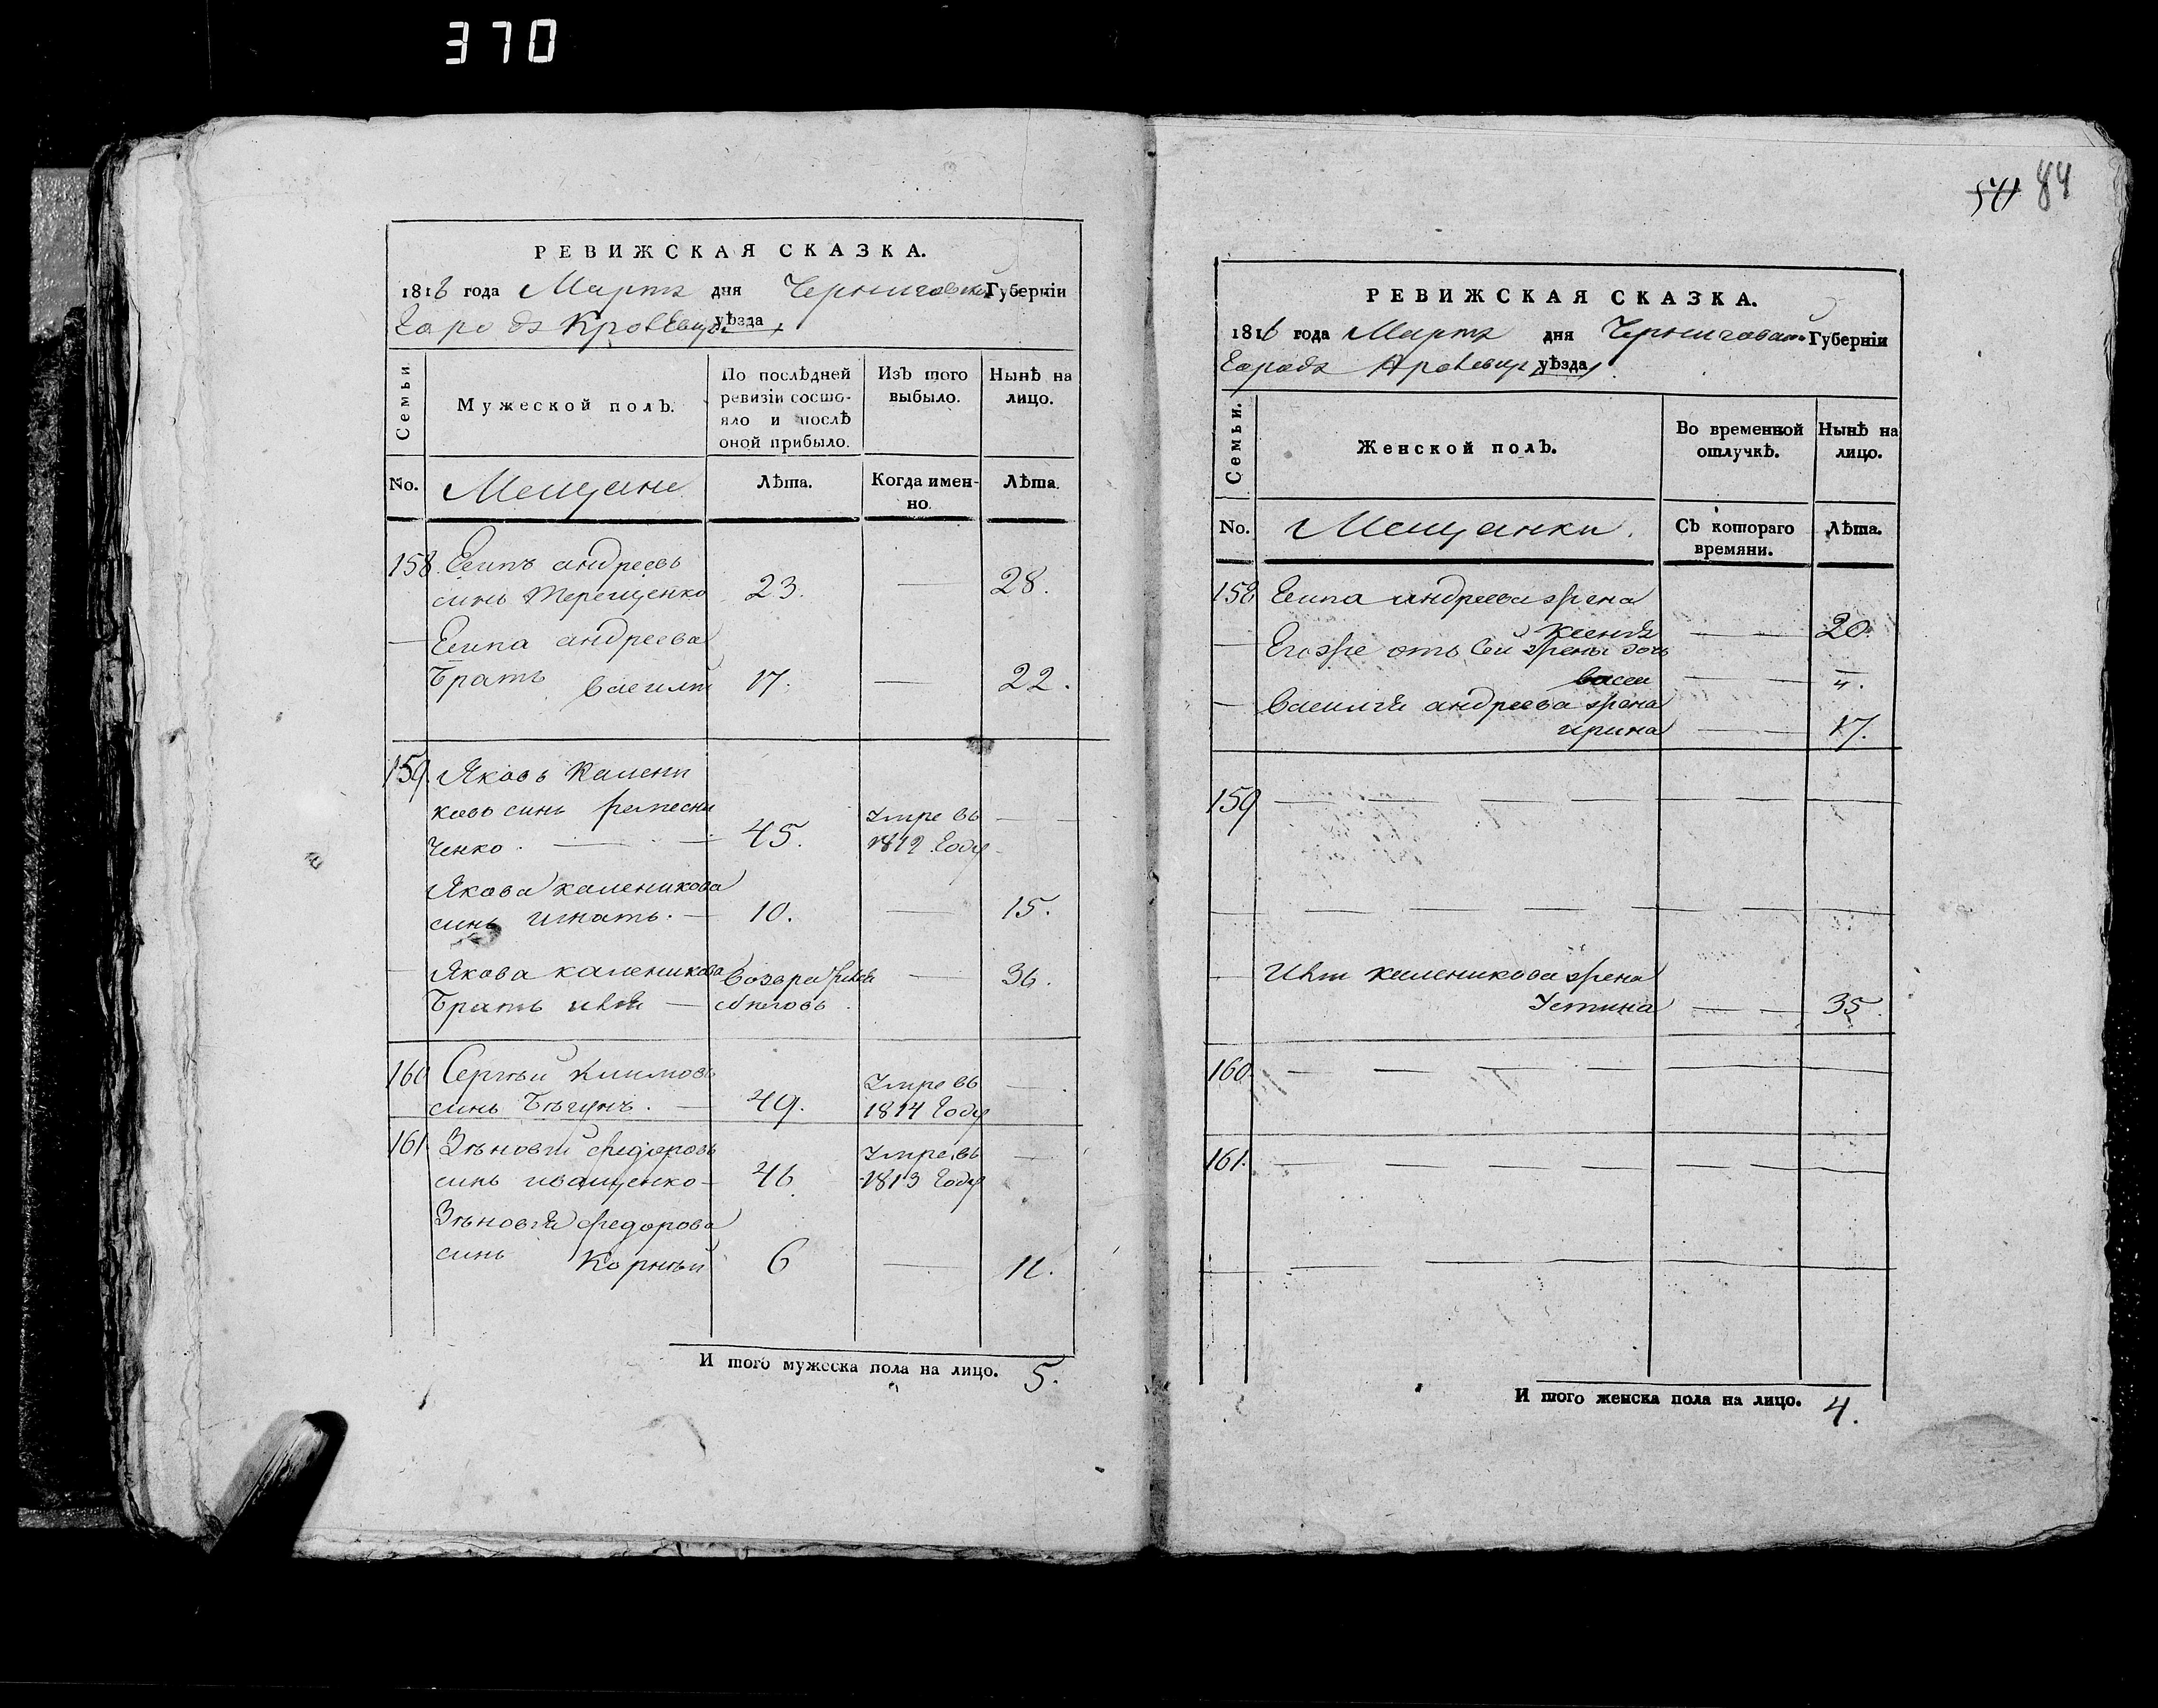 370
84
РЕВИЖСКАЯ СКАЗКА.
1816 года Мартъ дня Черниговской Губерніи
Города Кролевца уѣзда
Семьи.
Мужеской полъ.
По послѣдней ревизіи состояло и послѣ оной прибыло.
Изъ того выбыло.
Нынѣ на лицо.
No.
Мещане
Лѣта.
Когда именно.
Лѣта.
158. Есипъ андреевъ
синъ Терещенко 23. — 28.
— Есипа андреева
братъ василий 17. — 22.
159. Яковъ Калени
ковъ синъ
ченко. — 45. Умре въ 1812 Году —
Якова каленикова
синъ игнатъ. — 10. — 15.
— Якова каленикова
братъ — — 36.
160 Сергѣй Климовъ
синъ Бѣгунъ. — 49. Умре въ 1814 Году —
161. Зѣновий федоровъ
синъ иващенко — 46. Умре въ 1813 Году —
Зѣновия федорова
синъ Корнѣй 6 — 11.
И того мужеска пола на лицо. 5.
РЕВИЖСКАЯ СКАЗКА.
1816 года Мартъ дня Черниговской Губерніи
Города Кролевца уѣзда
Семьи.
Женской полъ.
Во временной отлучкѣ.
Нынѣ на лицо.
No.
Мещанки.
Съ котораго времяни.
Лѣта.
158 Есипа андреева жена
— — 20.
— Егоже отъ сей жены дочь
— — 4.
— василия андреева жена
ирина — — 17.
159 — — — — — — —
— — — — — — —
— каленикова жена
Устина — — 35.
160. — — — — — —
161. — — — — — — —
— — — —
И того женска пола на лицо. 4.